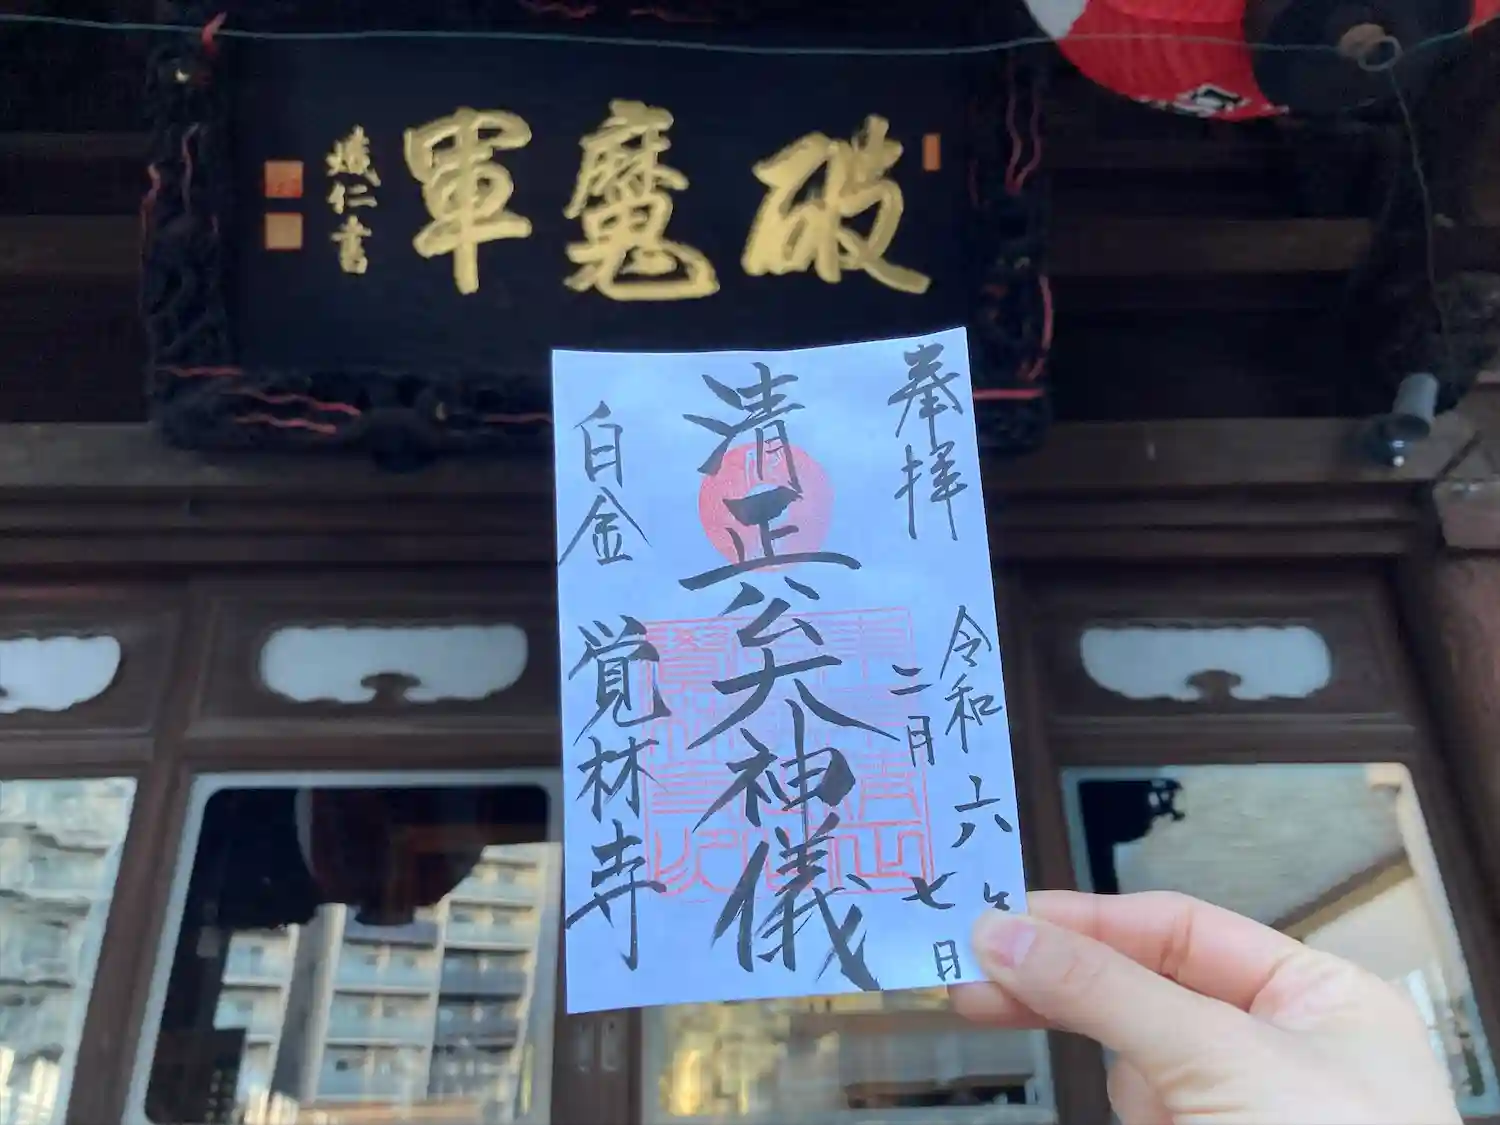 破魔軍
熾仁書
奉拝
令和六年
二月七日
清正公大神儀
白金 覚林寺